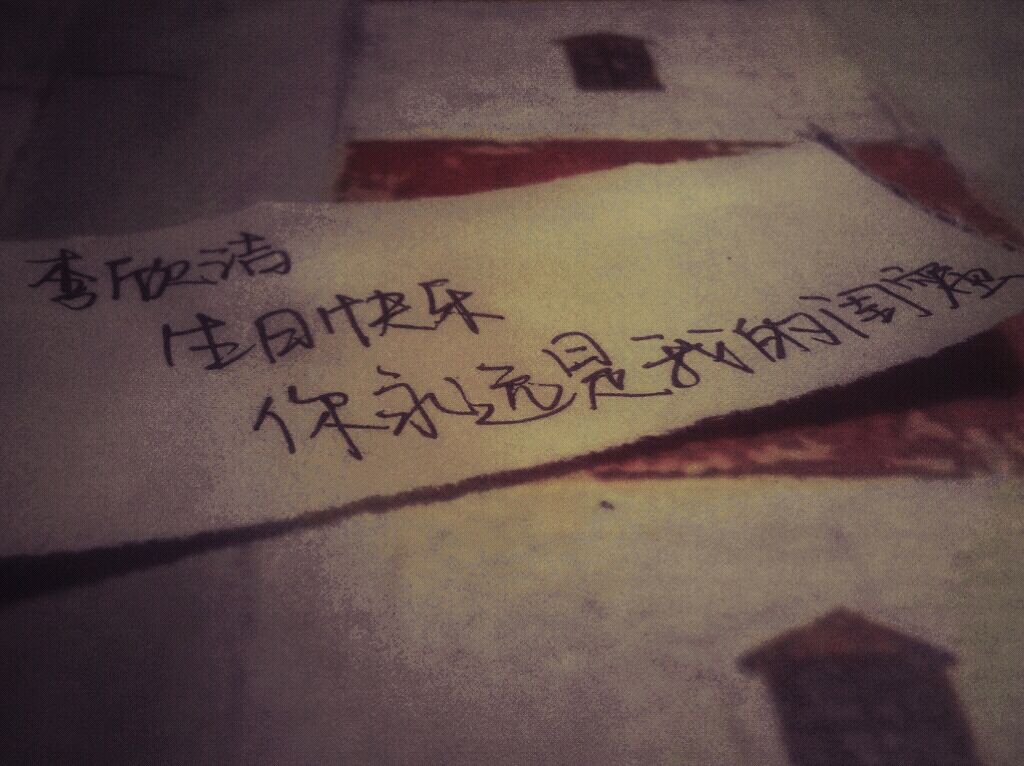 李欣洁
生日快乐
你永远是我的闺蜜